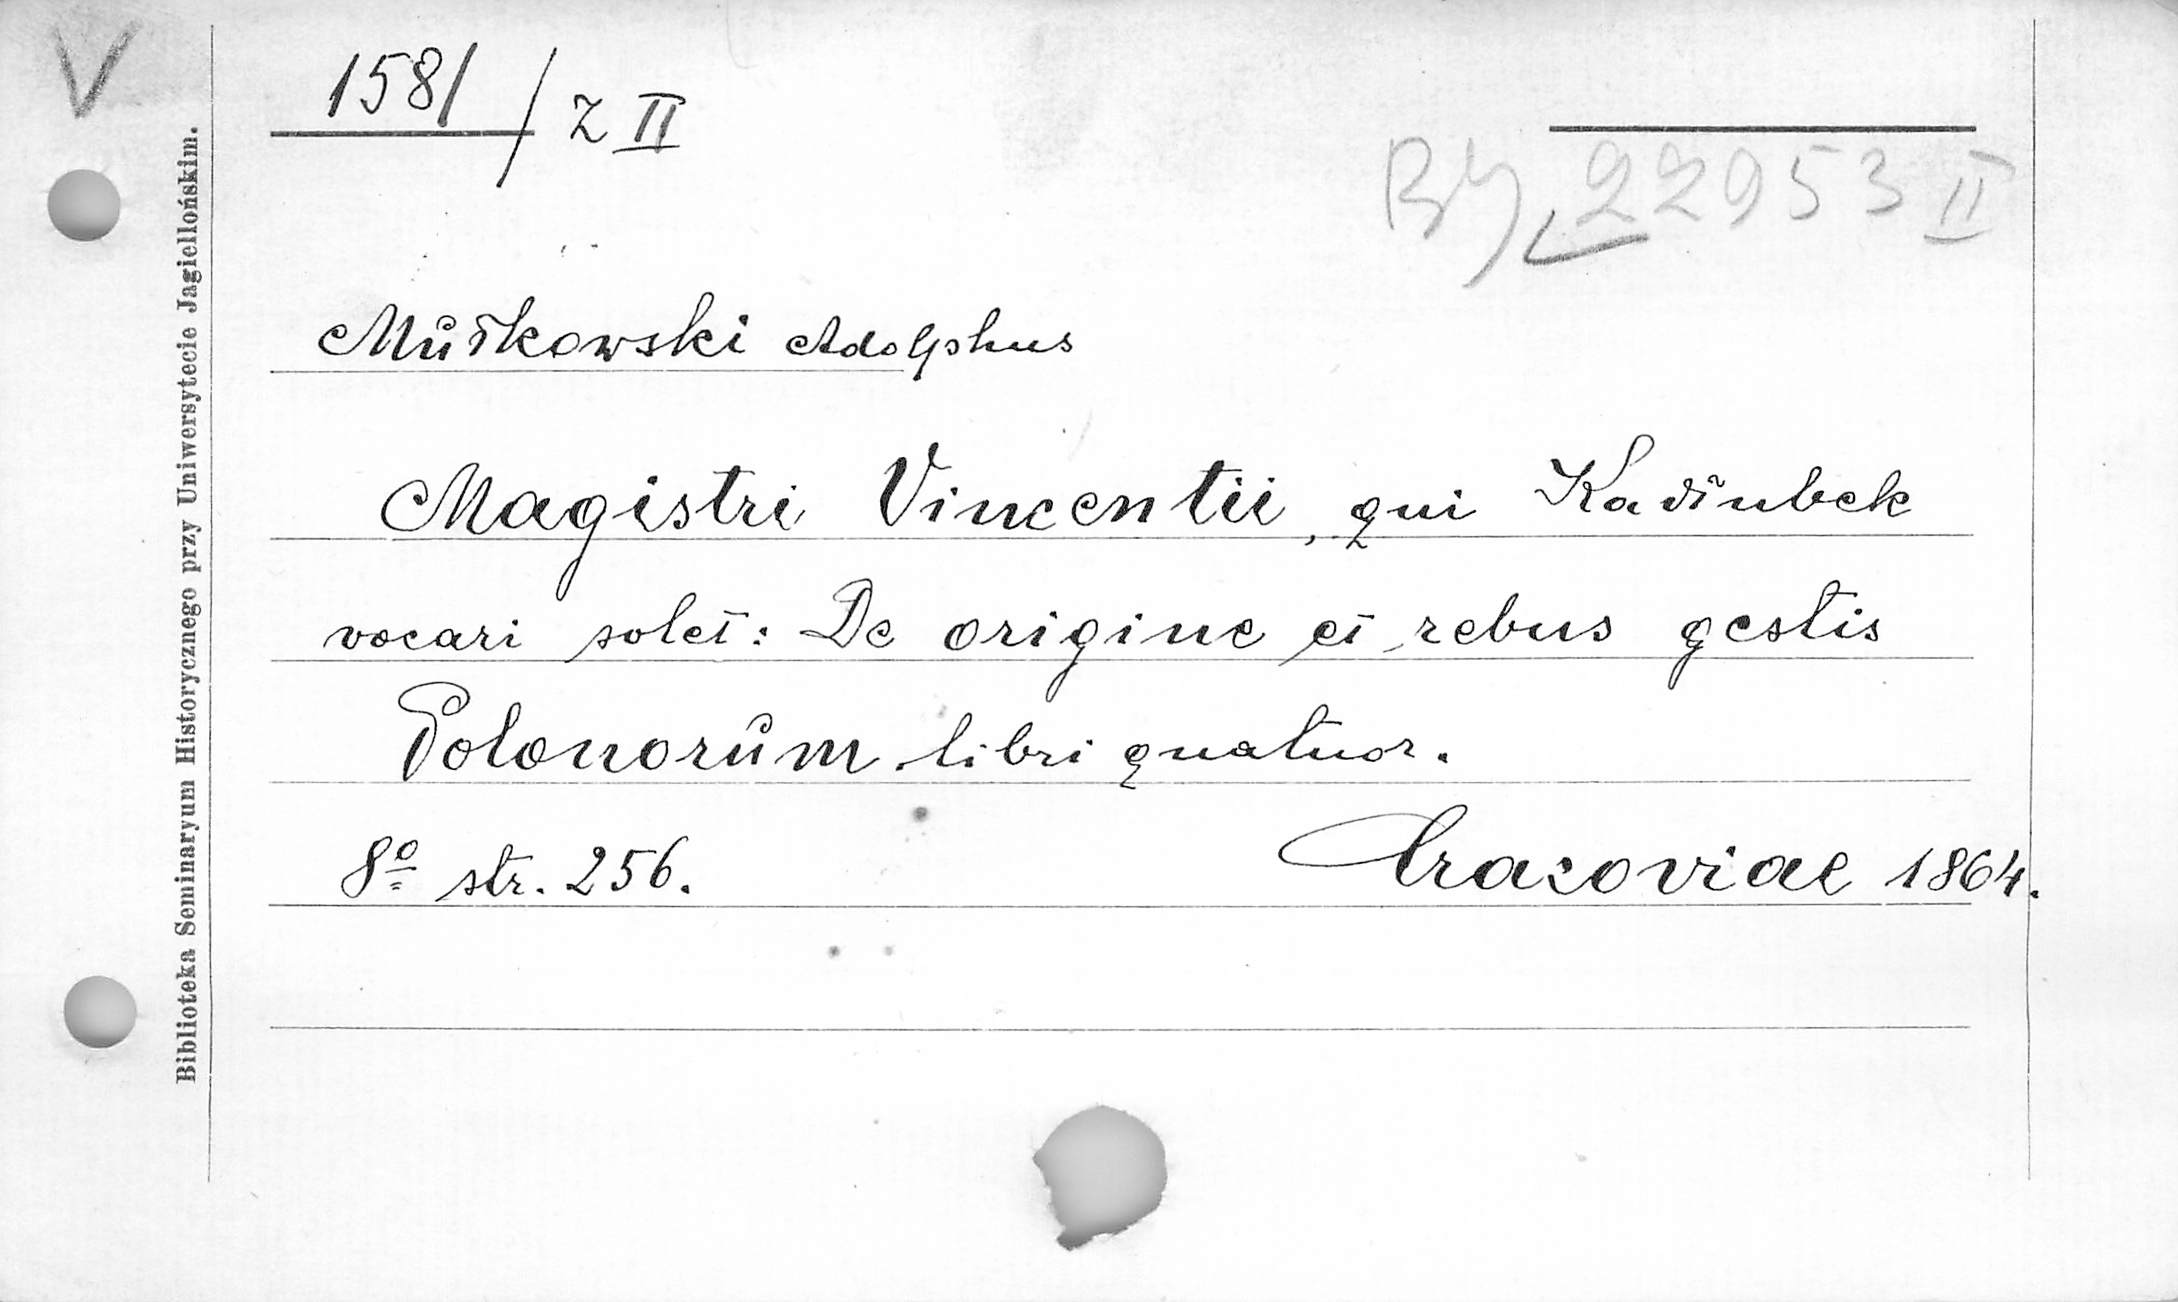 V
1581 / Z II
By 22953 II
Mułkowski Adolphus
Magistri Vincentii, qui Kadłubek
vocari solet: De origine et rebus gestis
Polonorum libri quatuor.
8º str. 256.
Cracoviae 1864.
Biblioteka Seminaryum Historycznego przy Uniwersytecie Jagiellońskim.